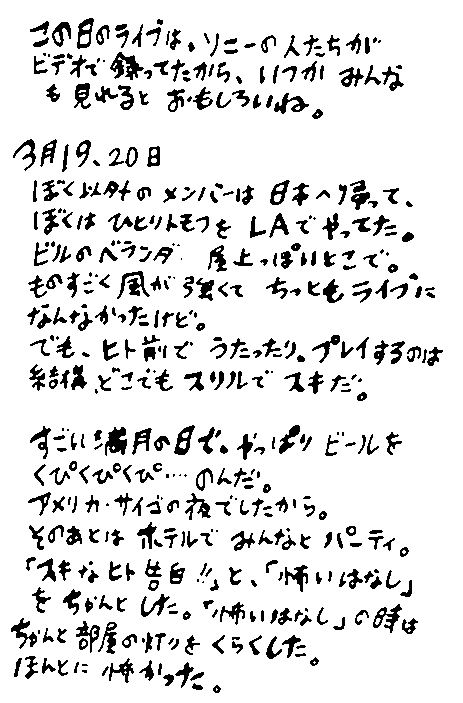 この日のライブは、ソニーの人たちが
ビデオで録ってたから、いつか みんな
も 見れると おもしろいね。
3月19、20日
ぼく以外の メンバーは 日本へ帰って、
ぼくは ひとりトモフを LAで やってた。
ビルのベランダ 屋上っぽいとこで。
ものすごく 風が 強くて ちっともライブに
なんなかったけど。
でも、ヒト前で うたったり。プレイするのは
結構、どこでも スリルで スキだ。
すごい 満月の日で。やっぱり ビールを
くぴくぴくぴ… のんだ。
アメリカ・サイゴの夜でしたから。
そのあとは ホテルで みんなと パーティ。
「スキなヒト 告白!!」と、「怖いはなし」
を ちかんと した。「怖いはなし」の時は
ちかんと 部屋の灯りを くらくした。
ほんとに 怖かった。